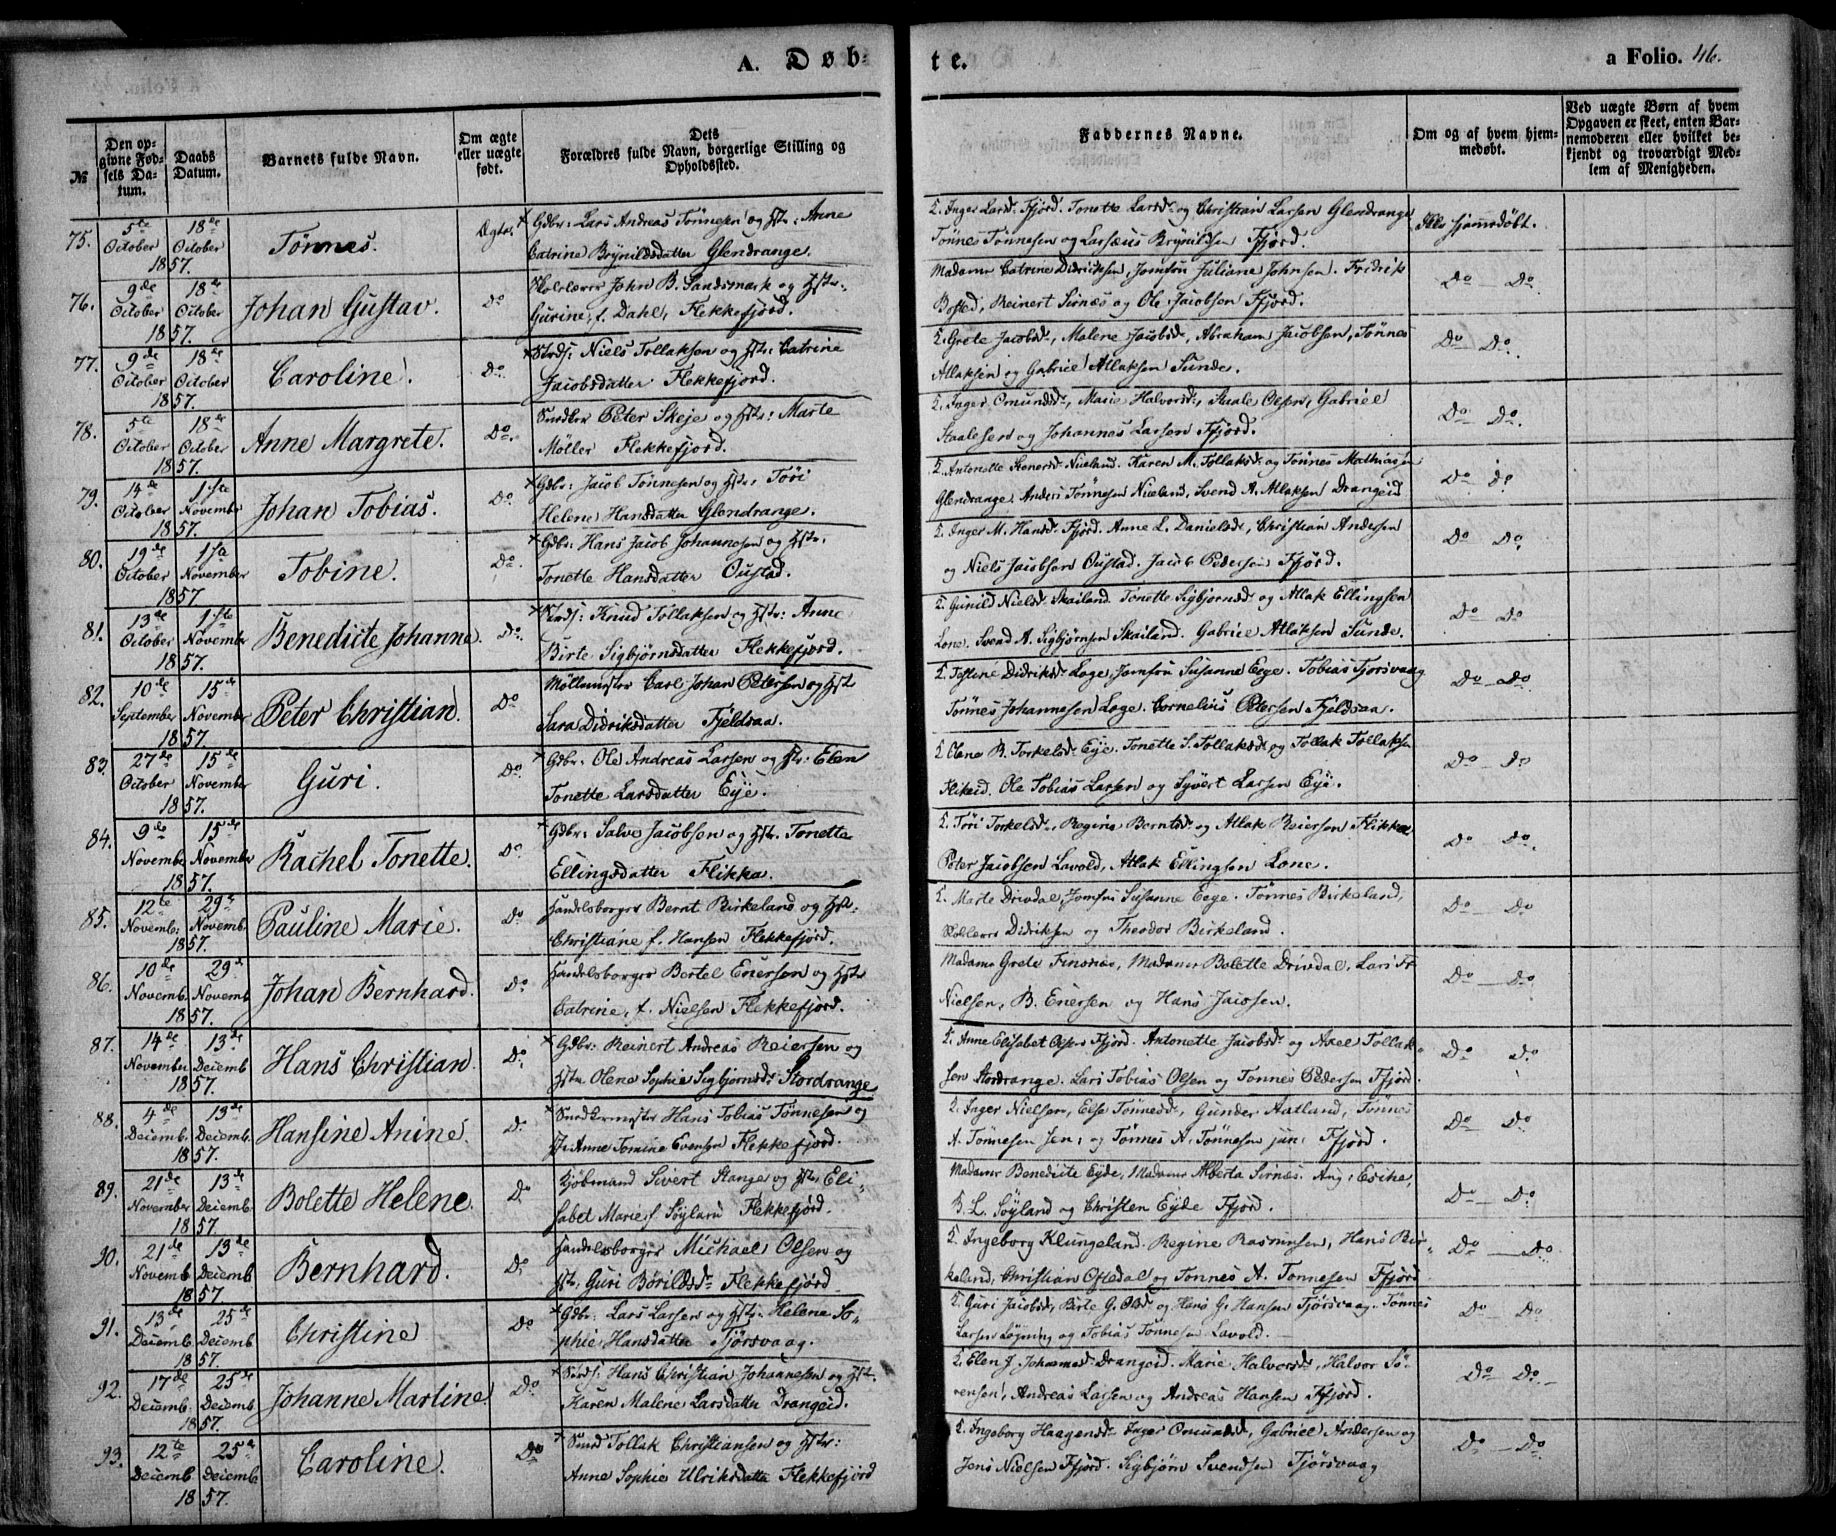 A. Døb-
te.
a Folio. 46.
№
Den op-
givne Fød-
sels Da-
tum.
Daabs
Datum.
Barnets fulde Navn.
Om ægte
eller uægte
født.
Dets
Forældres fulde Navn, borgerlige Stilling og
Opholdssted.
Faddernes Navne.
Om og af hvem hjem-
medøbt.
Ved uægte Børn af hvem
Opgaven er skeet, enten Bar-
nemoderen eller hvilket be-
kjendt og troværdigt Med-
lem af Menigheden.
75. 5te October 18de October 1857. Tønnes. Ægte. Gdbr: Lars Andreas Tønnesen og Hstr: Anne
Catrine Brynildsdatter Glendrange.
Inger Larsd. Fjord. Tonette Larsd. og Christian Larsen Glendrange
Tønnes Tønnesen og Larsæus Brynildsen Fjord.
hjemmedøbt.
76. 9de October 18de October 1857. Johan Gustav. Do Skolelærer John B. Sandsmark og Hstr:
Gurine, f. Dahl, Flekkefjord.
Madame Catrine Didriksen, Jomfru Juliane Johnsen. Fredrik
Bosted, Reinert Sirnæs og Ole Jacobsen Fjord.
Do Do
77. 9de October 18de October 1857. Caroline. Do Niels Tollaksen og Hstr: Catrine
Jacobsdatter Flekkefjord.
Grete Jacobsd., Malene Jacobsd., Abraham Jacobsen, Tønnes
Atlaksen og Gabriel Atlaksen Sunde.
Do Do.
78. 5te October 18de October 1857. Anne Margrete. Do. Peter Skeje og Hstr: Marte
Møller Flekkefjord.
Inger Omundsd., Marie Halvorsd., Olsen, Gabriel
Staalesen og Johannes Larsen Fjord.
Do Do.
79. 14de October 1ste November 1857. Johan Tobias. Do Gdbr: Jacob Tønnesen og Hstr: Tøri
Helene Hansdatter Glendrange.
Antonette Nueland. Karen M. Tollaksd. og Tønnes Mathiasen
Glendrange. Anders Tønnesen Nueland, Svend A. Atlaksen Drangeid
Do Do
80. 19de October 1ste November 1857 Tobine. Do. Gdbr: Hans Jacob Johannesen og Hstr:
Tonette Hansdatter Oustad.
Inger M. Hansd. Fjord. Anne L. Danielsd., Christian Andersen
og Niels Jacobsen Oustad. Jacob Pedersen Fjord.
Do Do.
81. 13de October 1ste November 1857. Benedicte Johanne. Do. Knud Tollaksen og Hstr: Anne
Birte Sigbjørnsdatter Flekkefjord.
Gunild Nielsd. Skailand. Tonette Sigbjørnsd. og Atlak Ellingsen
Lone. Svend A. Sigbjørnsen Skailand. Gabriel Atlaksen Sunde.
Do Do
82. 10de September 15de November 1857. Peter Christian. Do Møllemester Carl Johan Petersen og Hstr
Sara Didriksdatter Fjeldsaa.
Didriksd. Loge, Jomfru Susanne Eege. Tobias Fjorsvaag
Tønnes Johannesen Loge. Cornelius Petersen Fjeldsaa.
Do Do.
83. 27de October 15de November 1857. Guri. Do. Gdbr: Ole Andreas Larsen og Hstr: Elen
Tonette Larsdatter Eije.
Olene B. Torkelsd. Eije. Tonette S. Tollaksd. og Tollak Tollaksen
Flikeid. Ole Tobias Larsen og Syvert Larsen Eije.
Do Do
84. 9de November 15de November 1857. Rachel Tonette. Do. Gdbr: Salve Jacobsen og Hstr. Tonette
Ellingsdatter Flikka.
Tøri Torkelsd., Regine Berntsd. og Atlak Reiersen Flikka
Peter Jacobsen Lavold, Atlak Ellingsen Lone.
Do Do.
85. 12te Novemb: 29de Novemb. 1857. Pauline Marie. Do Handelsborger Bernt Birkeland og Hstr:
Christiane f. Hansen Flekkefjord.
Marte Drivdal, Jomfru Susanne Eege. Tønnes Birkeland,
Skolelærer Didriksen og Theodor Birkeland.
Do Do
86. 10de Novemb. 29de Novemb. 1857. Johan Bernhard. Do. Handelsborger Bertel Enersen og Hstr
Catrine, f. Nielsen Flekkefjord.
Madame Grete Finsnæs, Madame Bolette Drivdal, Lars Fr.
Nielsen, B. Enersen og Hans Jacobsen.
Do Do.
87. 14de November 13de Decemb 1857. Hans Christian Do. Gdbr: Reinert Andreas Reiersen og
Hstr. Olene Sophie Sigbjørnsd. Stordrange
Anne Elisabet Olsen Fjord. Antonette Jacobsd. og Axel Tollak-
sen Stordrange. Lars Tobias Olsen og Tønnes Pedersen Fjord.
Do Do
88. 4de Decemb. 13de Decemb. 1857. Hansine Anine. Do. Hans Tobias Tønnesen og
Anne Tomine Evensen Flekkefjord.
Inger Nielsen, Else Tønnesd., Gunder Aatland, Tønnes
A. Tønnesen sen: og Tønnes A. Tønnesen jun: Fjord.
Do Do.
89. 21de November 13de Decemb. 1857 Bolette Helene. Do. Kjøbmand Sivert Stange og Hstr Eli-
sabet Marie f. Søyland Flekkefjord.
Madame Benedicte Eyde, Madame Alberta Sirnæs. Aug:
B. L. Søyland og Christen Eyde Fjord.
Do Do.
90. 21de Novemb 13de Decemb 1857 Bernhard. Do. Handelsborger Michael Olsen og
Hstr. Guri Børildsd. Flekkefjord
Ingeborg Klungeland. Regine Rasmusen, Hans Bir-
keland, Christian Oftedal og Tønnes A. Tønnesen Fjord
Do Do.
91. 13de Decemb. 25de Decemb 1857. Christine Do Gdbr: Lars Larsen og Hstr. Helene So-
phie Hansdatter Fjorsvaag.
Guri Jacobsd., Birte G. Olsd. og Hans G. Hansen Fjorsvaag. Tønnes
Larsen Løgning og Tobias Tønnesen Lavold.
Do Do.
92. 17de Decemb. 25de Decemb. 1857. Johanne Martine. Do. Hans Christian Johannesen og Hstr.
Karen Malene Larsdatter Drangeid.
Elen J. Johannesd. Drangeid. Marie Halvorsd., Halvor Sø-
rensen, Andreas Larsen og Andreas Hansen Fjord.
Do Do.
93. 12te Decemb 25de Decemb. 1857. Caroline. Do Tollak Christiansen og Hstr:
Anne Sophie Ulriksdatter Flekkefjord
Ingeborg Haagensd. Inger Omundsd., Gabriel Andersen og
Jens Nielsen Fjord. Sigbjørn Svendsen Fjorsvaag
Do Do.